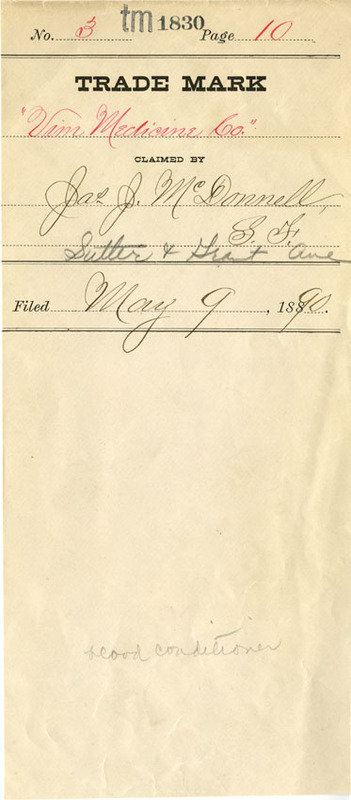 tm 1830
No. 3 Page 10
TRADE MARK
"Vim Medicine Co."
CLAIMED BY
Jas J. McDonnell,
S. F.
Sutter & Grant Ave
Filed May 9, 1890.
blood conditioner